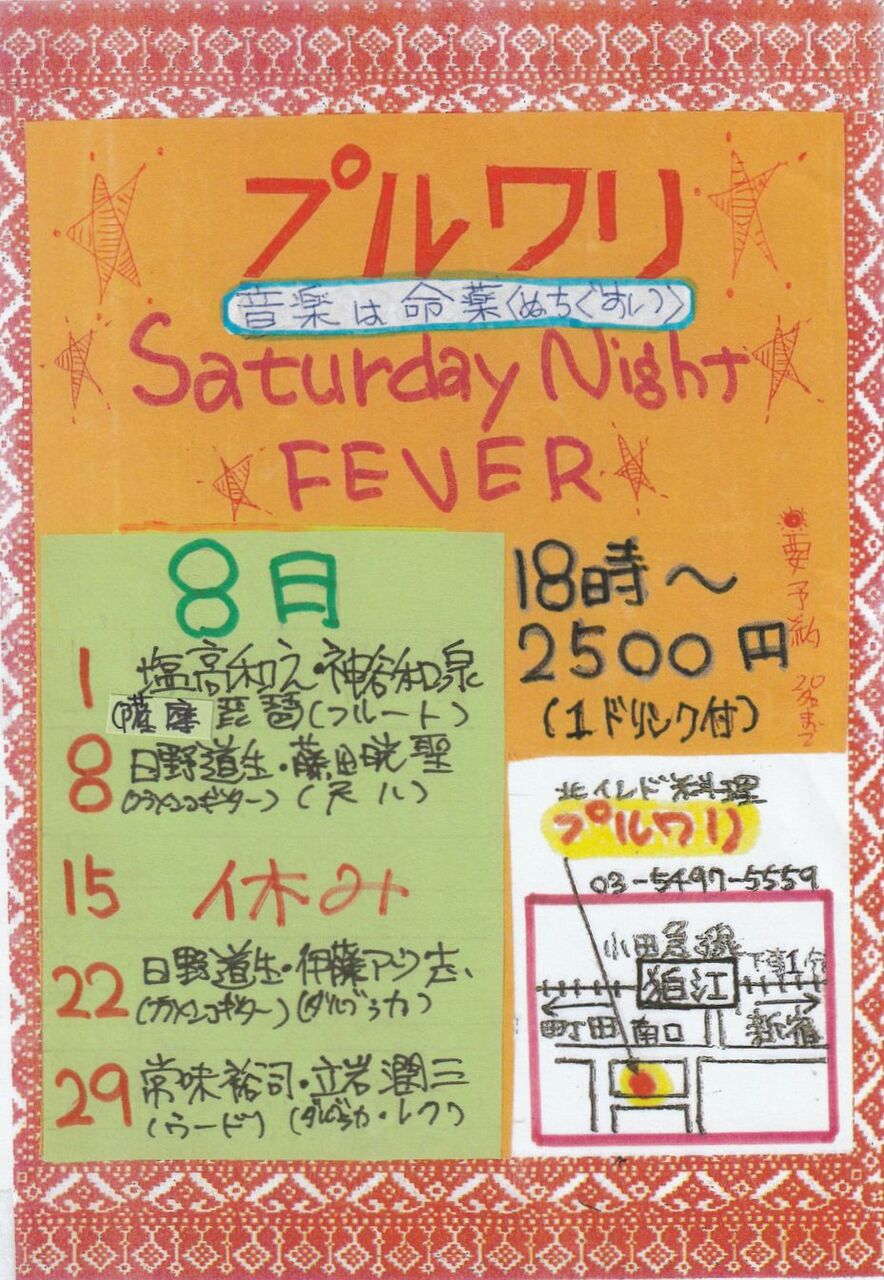 プルワリ
音楽は命薬〈ぬちぐすい〉
Saturday Night
FEVER
8日
1 塩高和之・神谷和泉
(薩摩琵琶(フルート)
8 日野道生・藤田晄聖
(フラメンコギター)(尺八)
15 休み
22 日野道生・伊藤アツ志
(フラメンコギター)(ダルブッカ)
29 常味裕司・立岩潤三
(ウード)(ダルブッカ・レク)
18時〜
2500円
(1ドリンク付)
要予約 20名まで
北インド料理
プルワリ
03-5497-5559
小田急線
狛江
町田 南口 新宿